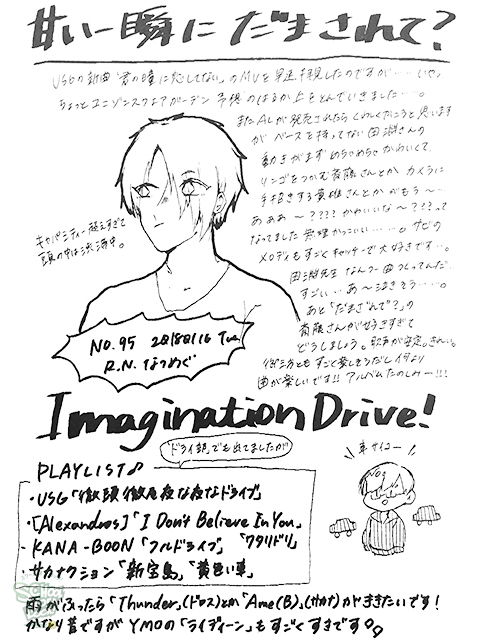 甘い一瞬にだまされて?
USGの新曲「君の瞳に恋してない」のMVを早速拝見したのですが……いや、
ちょっとユニゾンスクエアガーデン予想のはるか上をとんでいきました…。
またALが発売されたらくわしくかこうと思います
が ベースを持ってない田淵さんの
動きがまずめちゃめちゃかわいくて
リンゴをつかむ斎藤さんとか カメラに
手招きする貴雄さんとか がもう〜
あああ〜???? かわいいな〜???って
なってました 貴雄かっこいい……。サビの
メロディもすごくキャッチーで大好きです…。
田淵先生 なんつー曲つくってんだ
すごい…あ〜泣きそう……。
あと「だまされて?」の
斎藤さんがせつなすぎて
どうしましょう。歌声が安定しきれい。
御三方ともすごく楽しそうだし何より
曲が楽しいです!! アルバムたのしみー!!!
キャパシティー超えすぎて
頭の中は渋滞中。
NO.95 2018 01 16 Tue
R.N. なつめぐ
Imagination Drive!
「ドライ部」でも出てましたが
PLAYLIST♪
・USG「徹頭徹尾夜な夜なドライブ」
・[Alexandros]「I Don't Believe In You」
・KANA-BOON「フルドライブ」「ワタリドリ」
・サカナクション「新宝島」「黄色い車」
車サイコー
雨がふったら「Thunder」(ドロス)とか「Ame(B)」(サカナ)がききたいです!
かなり昔ですがYMOの「ライディーン」もすごくすきです。